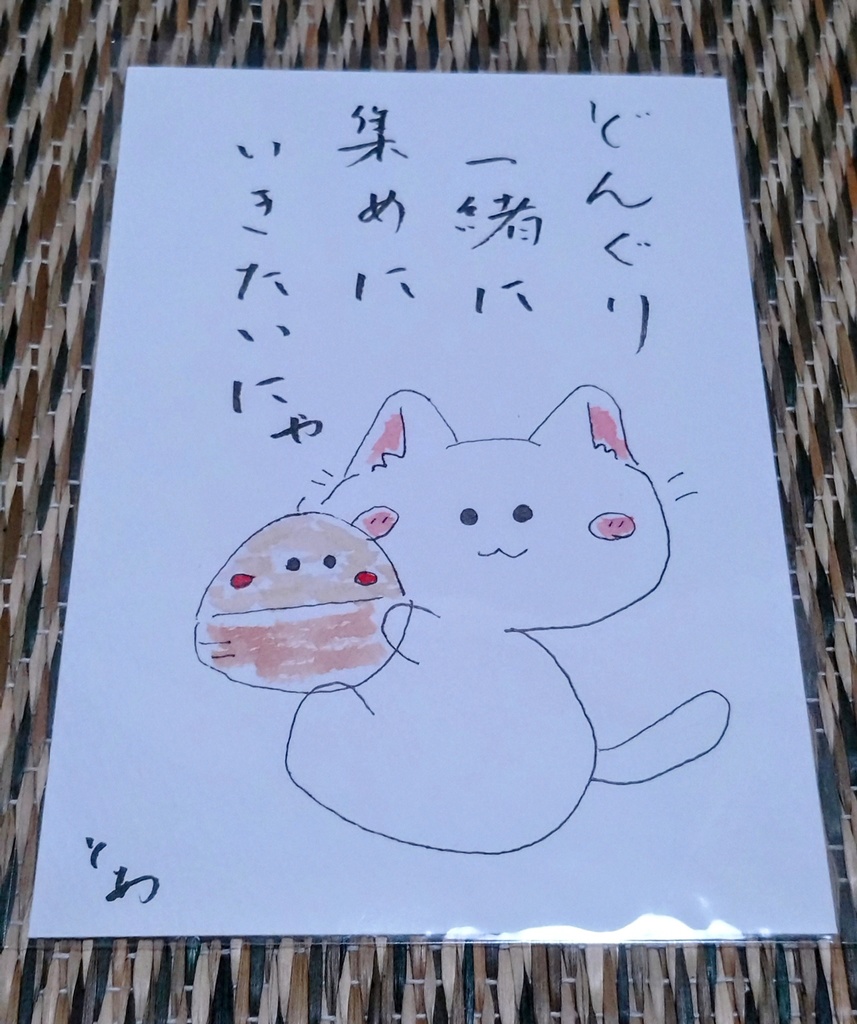 どんぐり
一緒に
集めに
いきたいにゃ